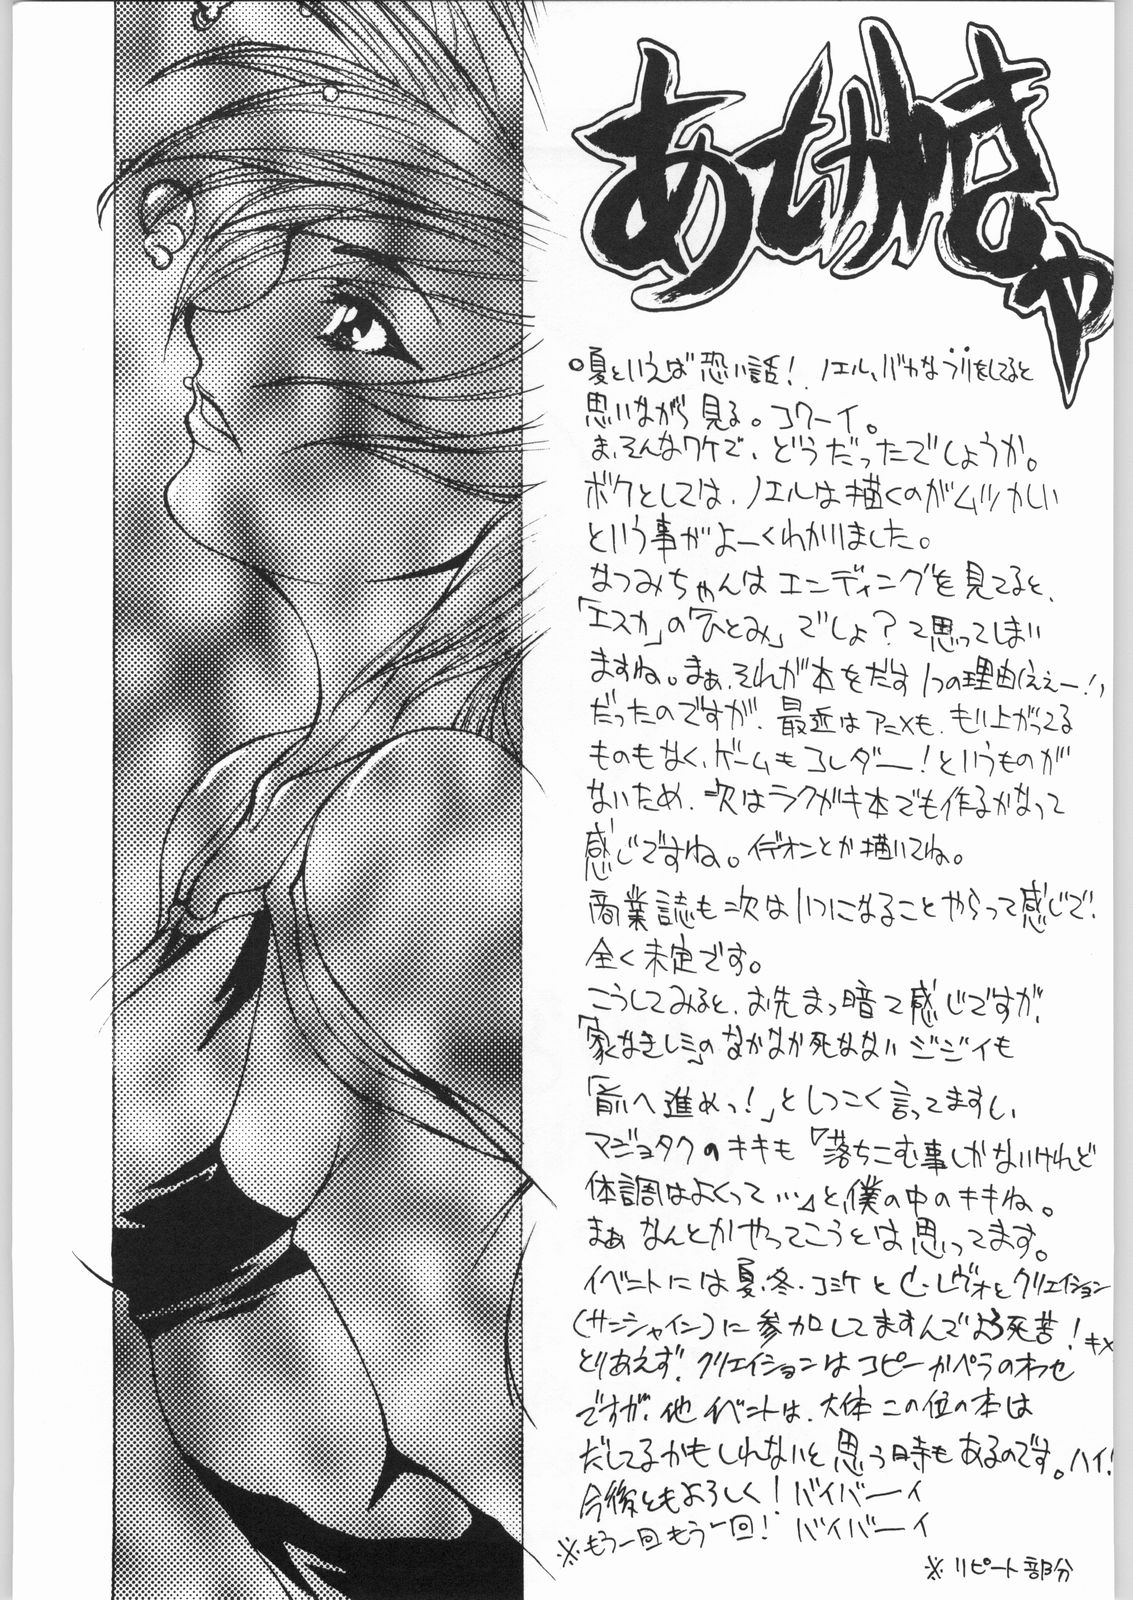 あとがきゃ
○夏といえば恐い話！ノエル、バカなフリをしてると
思いながら見る。コワーイ。
ま、そんなワケで、どうだったでしょうか。
ボクとしては、ノエルは描くのがムツかしい
という事がよーくわかりました。
なつみちゃんはエンディングを見てると、
「エスカ」の「ひとみ」でしょ？て思ってしまい
ますね。まぁ、それが本をだす1つの理由(ええー！)
だったのですが、最近はアニメも、もり上がってる
ものもなく、ゲームもコレダー！というものが
ないため、次はラクガキ本でも作るかなって
感じですね。イデオンとか描いてね。
商業誌も次はいつになることやらって感じで、
全く未定です。
こうしてみると、お先まっ暗て感じですが、
「家なき子レミ」のなかなか死なないジジイも
「前へ進めっ！」としつこく言ってますし、
マジョタクのキキも「落ちこむ事しかないけれど
体調はよくって…」と僕の中のキキね。
まぁなんとかやってこうとは思ってます。
イベントには夏、冬、コミケとC・レヴォとクリエイション
(サンシャイン)に参加してますんでよろ死苦！キメ
とりあえず、クリエイションはコピーかペラのオフセ
ですが、他イベントは、大体この位の本は
だしてるかもしれないと思う時もあるのです。ハイ！
今後ともよろしく！バイバーイ
※もう一回もう一回！バイバーイ
※リピート部分